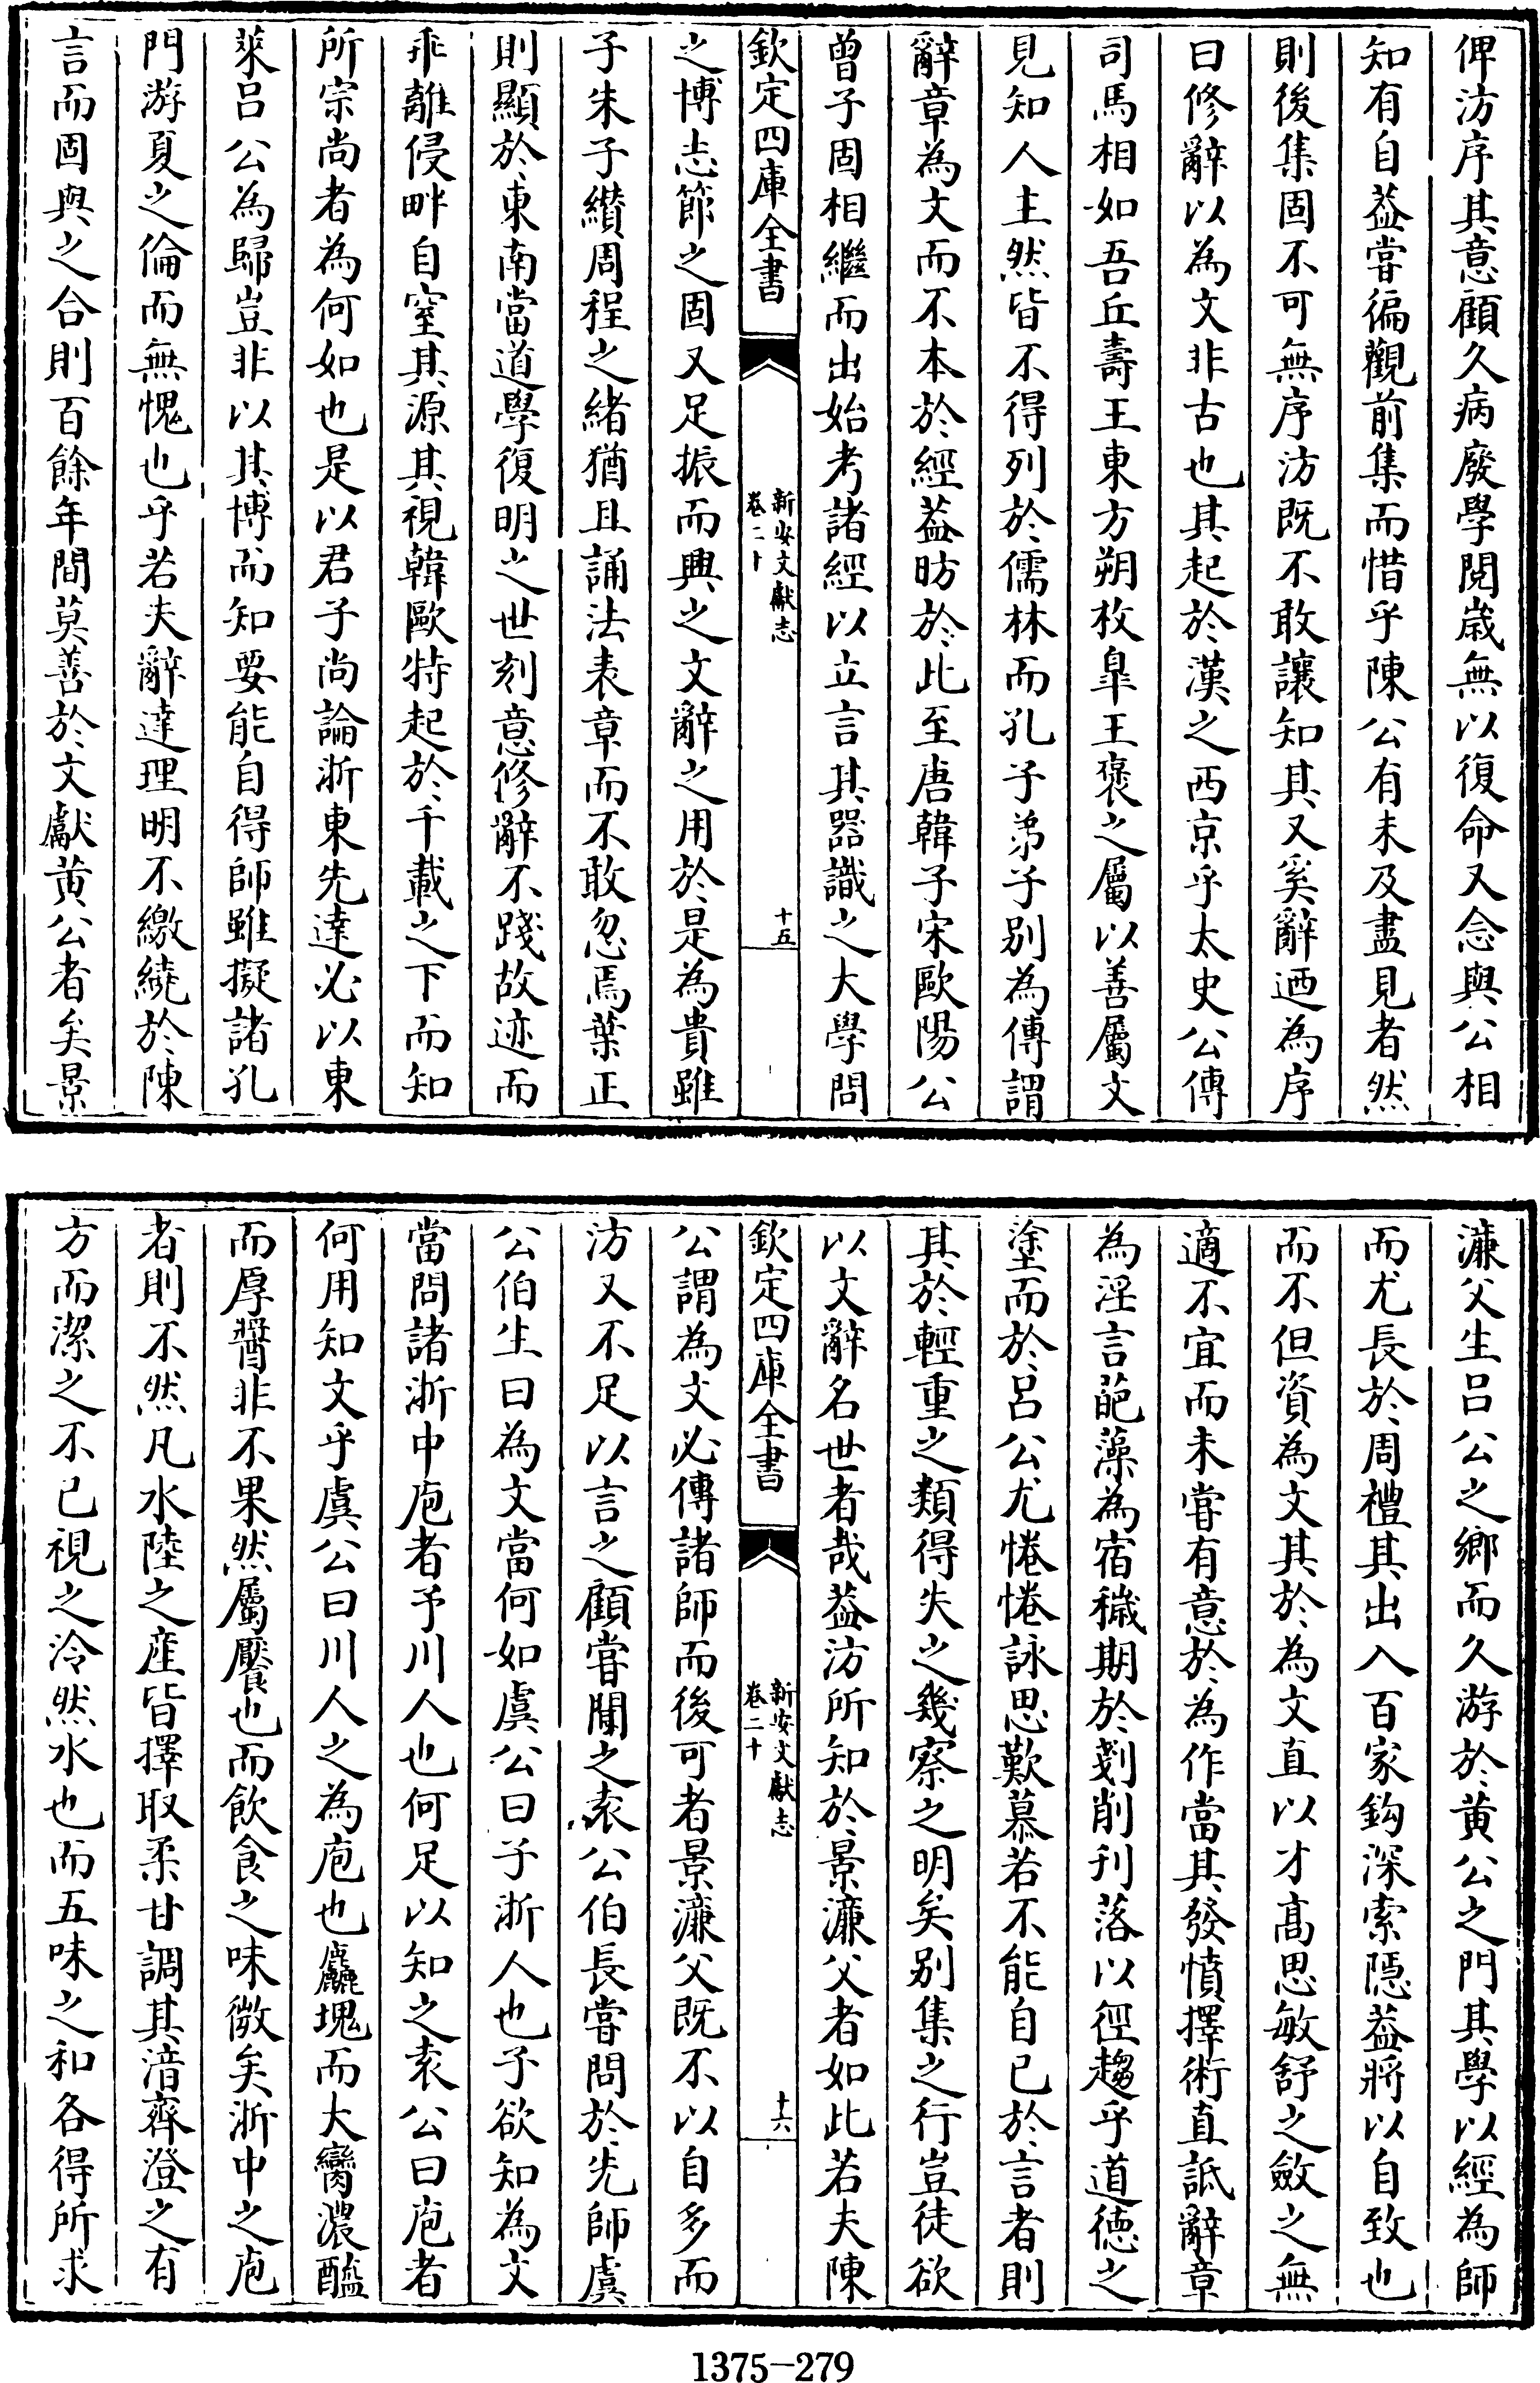 俾汸序其意顧久病廢學閱歲無以復命又念與公相
知有自葢嘗徧觀前集而惜乎陳公有未及盡見者然
則後集固不可無序汸既不敢讓知其又奚辭迺為序
曰修辭以為文非古也其起於漢之西京乎太史公傳
司馬相如吾丘壽王東方朔枚臯王褒之屬以善屬文
見知人主然皆不得列於儒林而孔子弟子别為傳謂
辭章為文而不本於經葢昉於此至唐韓子宋歐陽公
曾子固相繼而出始考諸經以立言其器識之大學問
欽定四庫全書
新安文獻志
卷二十
十五
之博志節之固又足振而興之文辭之用於是為貴雖
子朱子纘周程之緒猶且誦法表章而不敢忽焉葉正
則顯於東南當道學復明之世刻意修辭不踐故迹而
乖離侵畔自窒其源其視韓歐特起於千載之下而知
所宗尚者為何如也是以君子尚論浙東先達必以東
萊呂公為歸豈非以其博而知要能自得師雖擬諸孔
門游夏之倫而無愧也乎若夫辭達理明不繳繞於陳
言而固與之合則百餘年間莫善於文獻黄公者矣景
濂父生呂公之鄉而久游於黄公之門其學以經為師
而尤長於周禮其出入百家鈎深索隱葢將以自致也
而不但資為文其於為文直以才髙思敏舒之斂之無
適不宜而未嘗有意於為作當其發憤擇術直詆辭章
為淫言葩藻為宿穢期於剗削刋落以徑趨乎道德之
塗而於呂公尤惓惓詠思歎慕若不能自已於言者則
其於輕重之類得失之幾察之明矣别集之行豈徒欲
以文辭名世者哉葢汸所知於景濂父者如此若夫陳
欽定四庫全書
新安文獻志
卷二十
十六
公謂為文必傳諸師而後可者景濂父既不以自多而
汸又不足以言之顧嘗聞之袁公伯長嘗問於先師虞
公伯生曰為文當何如虞公曰子浙人也子欲知為文
當問諸浙中庖者予川人也何足以知之袁公曰庖者
何用知文乎虞公曰川人之為庖也麤塊而大臠濃醢
而厚醬非不果然屬饜也而飲食之味微矣浙中之庖
者則不然凡水陸之産皆擇取柔甘調其湆齊澄之有
方而潔之不已視之泠然水也而五味之和各得所求
1375-279